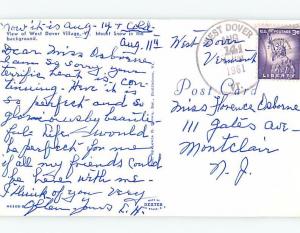 Now it is Aug-14+ Cold.
View of West Dover Village, Vt. Mount Snow in the
background.
Aug. 11th
Dear Miss Osborne,
I am so sorry your
terrific heat is con-
tinuing. Here it is
so perfect and so
gloriously beauti-
ful. Life would
be perfect for me
if all my friends could
be here with me—
I think of you very
often. Yours L.H.
DEXTER
West Dover
Vermont
WEST DOVER
AUG
14
1961
U.S. POSTAGE 3¢
LIBERTY
Post Card
Miss Florence Osborne
111 Gates Ave-
Montclair
N. J.